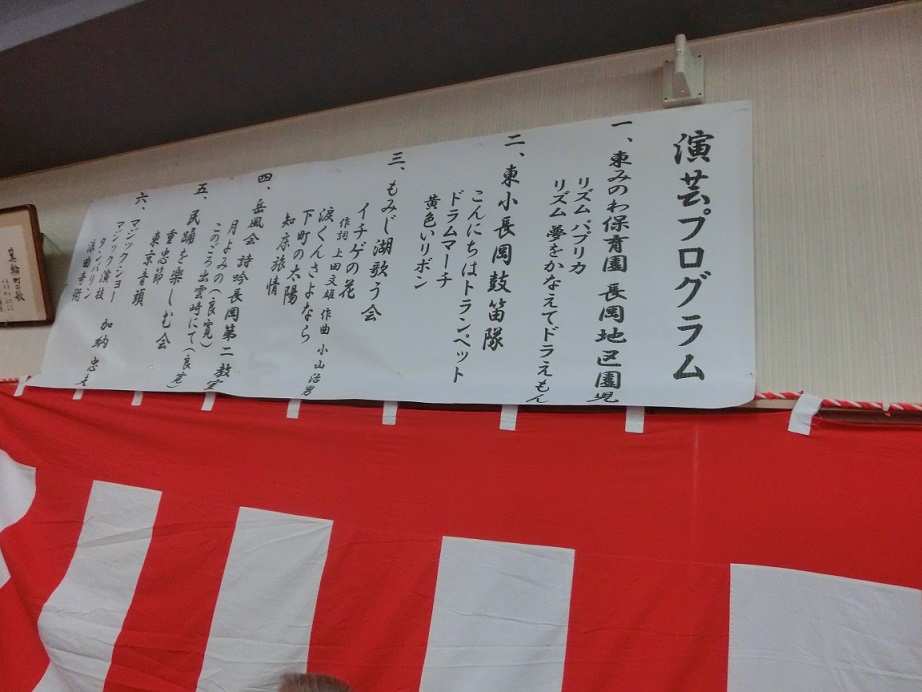 演芸プログラム
一、東みのわ保育園 長岡地区園児
リズム パプリカ
リズム 夢をかなえてドラえもん
二、東小長岡鼓笛隊
こんにちはトランペット
ドラムマーチ
黄色いリボン
三、もみじ湖歌う会
イチゲの花
作詞 上田文雄 作曲 小山治男
涙くんさよなら
下町の太陽
知床旅情
四、岳風会 詩吟長岡第二教室
月よみの(良寛)
このごろ出雲崎にて(良寛)
五、民踊を楽しむ会
重忠節
東京音頭
六、マジックショー
マジック演技 加納忠
タンバリン
浪曲奇術